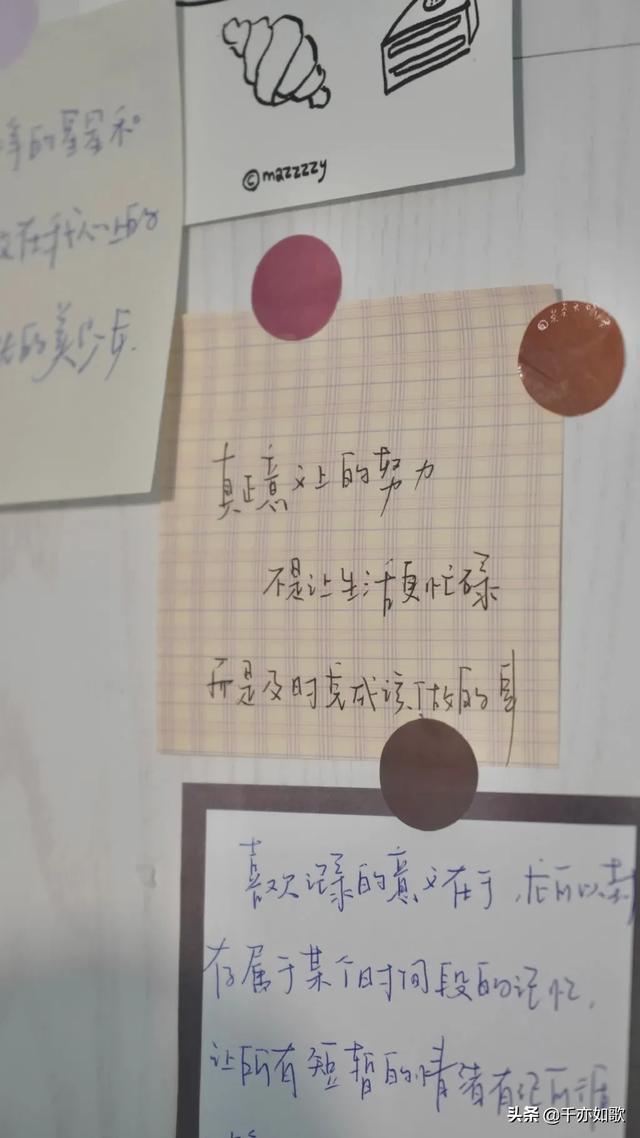 ©mazzzzy
的星星和
在千人心上的
的美少女.
真正意义上的努力
不是让生活更忙碌
而是及时完成该做的事
喜欢记录的意义在于,尤所以封
存属于某个时间段的记忆,
让所有短暂的情绪有迹所涯
头条 @千亦如歌